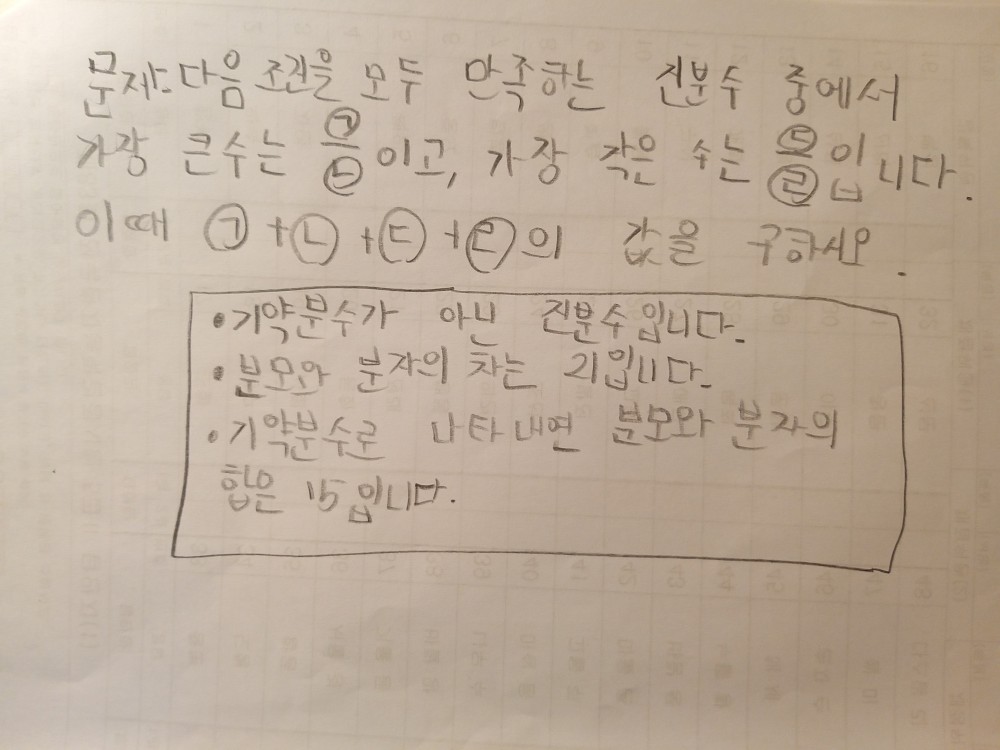 문제. 다음 조건을 모두 만족하는 진분수 중에서
가장 큰수는 ㉠/㉡이고, 가장 작은 수는 ㉢/㉣입니다.
이때 ㉠+㉡+㉢+㉣의 값을 구하시오.
• 기약분수가 아닌 진분수입니다.
• 분모와 분자의 차는 21입니다.
• 기약분수로 나타내면 분모와 분자의
합은 15입니다.